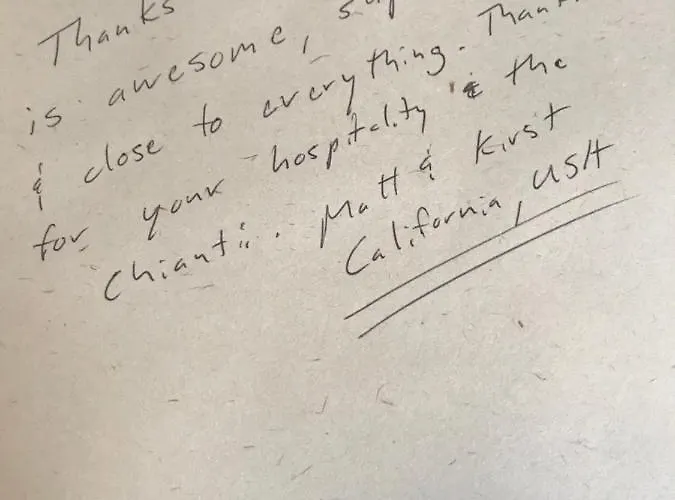 Thanks
is awesome,
& close to everything.
for your hospitality & the
Chianti. Matt & Kirst
California, USA